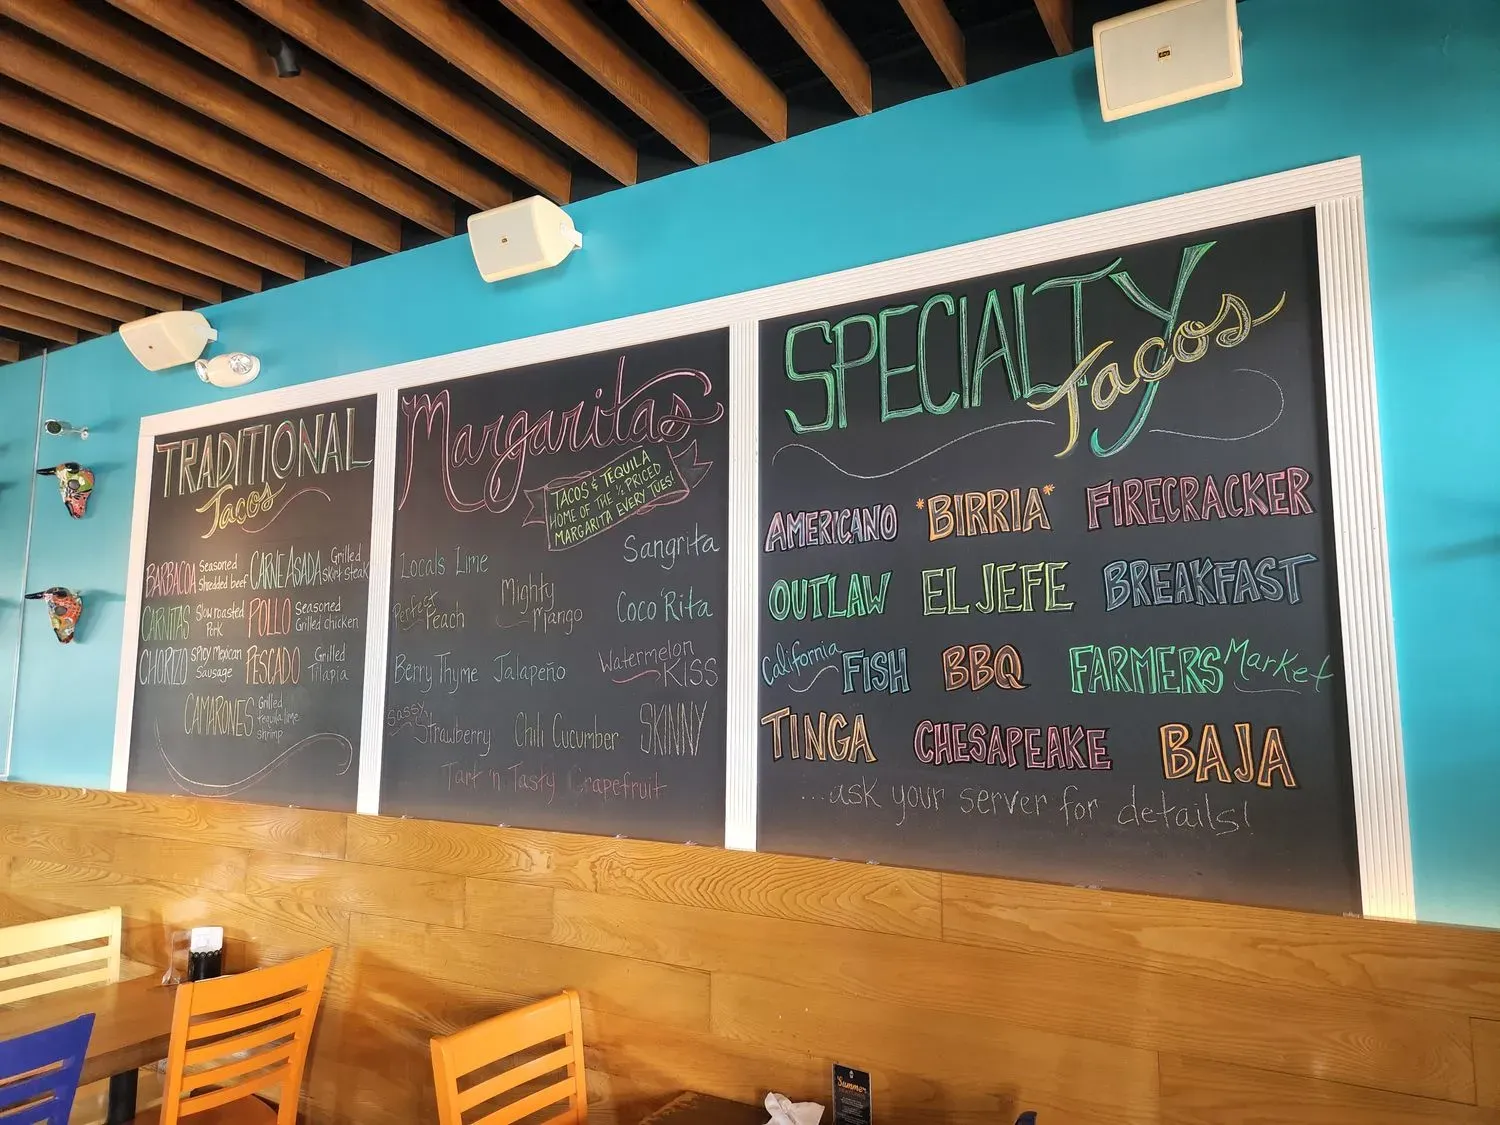 TRADITIONAL
Tacos
BARBACOA Seasoned Shredded beef
CARNE ASADA Grilled Skirt steak
CARNITAS Slow roasted Pork
POLLO Seasoned Grilled chicken
CHORIZO SPICY Mexican Sausage
PESCADO Grilled Tilapia
CAMARONES Grilled tequila lime shrimp
Margaritas
TACOS & TEQUILA
HOME OF THE ½ PRICED
MARGARITA EVERY TUES!
Locals Lime
Sangrita
Perfect Peach
Mighty Mango
Coco'Rita
Berry Thyme
Jalapeño
Watermelon KISS
Sassy Strawberry
Chili Cucumber
SKINNY
Tart 'n Tasty Grapefruit
SPECIALTY
Tacos
AMERICANO *BIRRIA* FIRECRACKER
OUTLAW EL JEFE BREAKFAST
California FISH BBQ FARMERS Market
TINGA CHESAPEAKE BAJA
...ask your server for details!
Summer